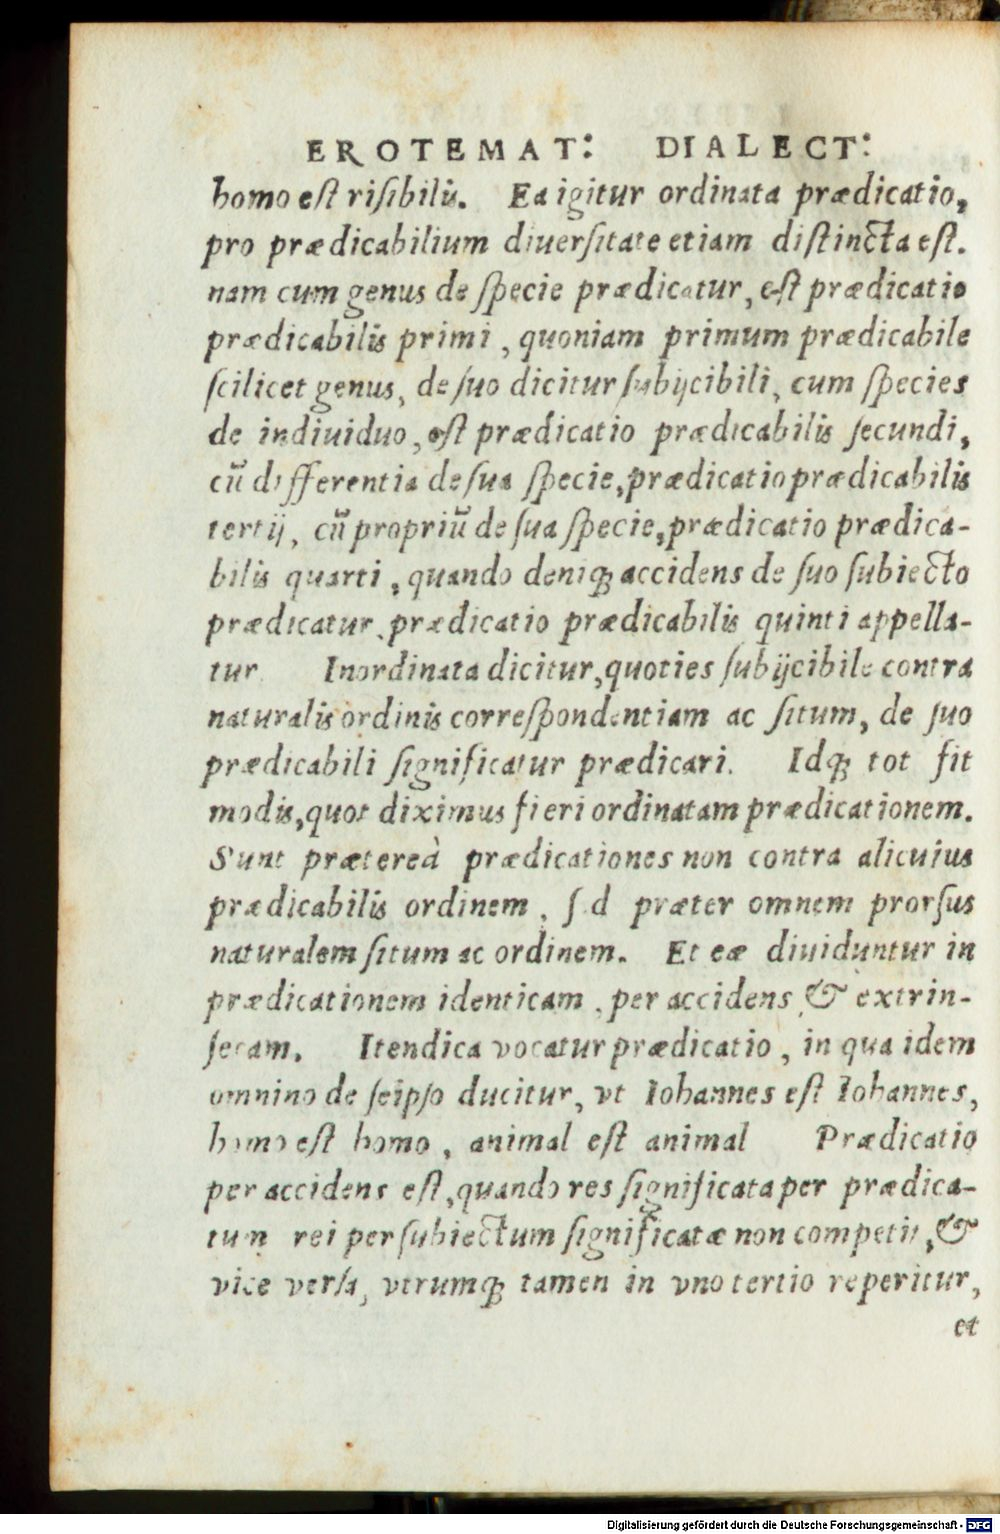 EROTEMAT: DIALECT:
homo est risibilis. Ea igitur ordinata prædicatio,
pro prædicabilium diuersitate etiam distincta est.
nam cum genus de specie prædicatur, est prædicatio
prædicabilis primi, quoniam primum prædicabile
scilicet genus, de suo dicitur subijcibili, cum species
de indiuiduo, est prædicatio prædicabilis secundi,
cũ differentia de sua specie, prædicatio prædicabilis
tertij, cũ propriũ de sua specie, prædicatio prædica-
bilis quarti, quando deniq; accidens de suo subiecto
prædicatur, prædicatio prædicabilis quinti appella-
tur Inordinata dicitur, quoties subijcibile contra
naturalis ordinis correspondentiam ac situm, de suo
prædicabili significatur prædicari. Idq; tot fit
modis, quot diximus fieri ordinatam prædicationem.
Sunt prætereà prædicationes non contra alicuius
prædicabilis ordinem, sed præter omnem prorsus
naturalem situm ac ordinem. Et eæ diuiduntur in
prædicationem identicam, per accidens, & extrin-
secam. Itendica vocatur prædicatio, in qua idem
omnino de seipso ducitur, vt Iohannes est Iohannes,
homo est homo, animal est animal Prædicatio
per accidens est, quando res significata per prædica-
tum rei per subiectum significatæ non competit, &
vice versa, vtrumq; tamen in vno tertio reperitur,
et
Digitalisierung gefördert durch die Deutsche Forschungsgemeinschaft - DFG